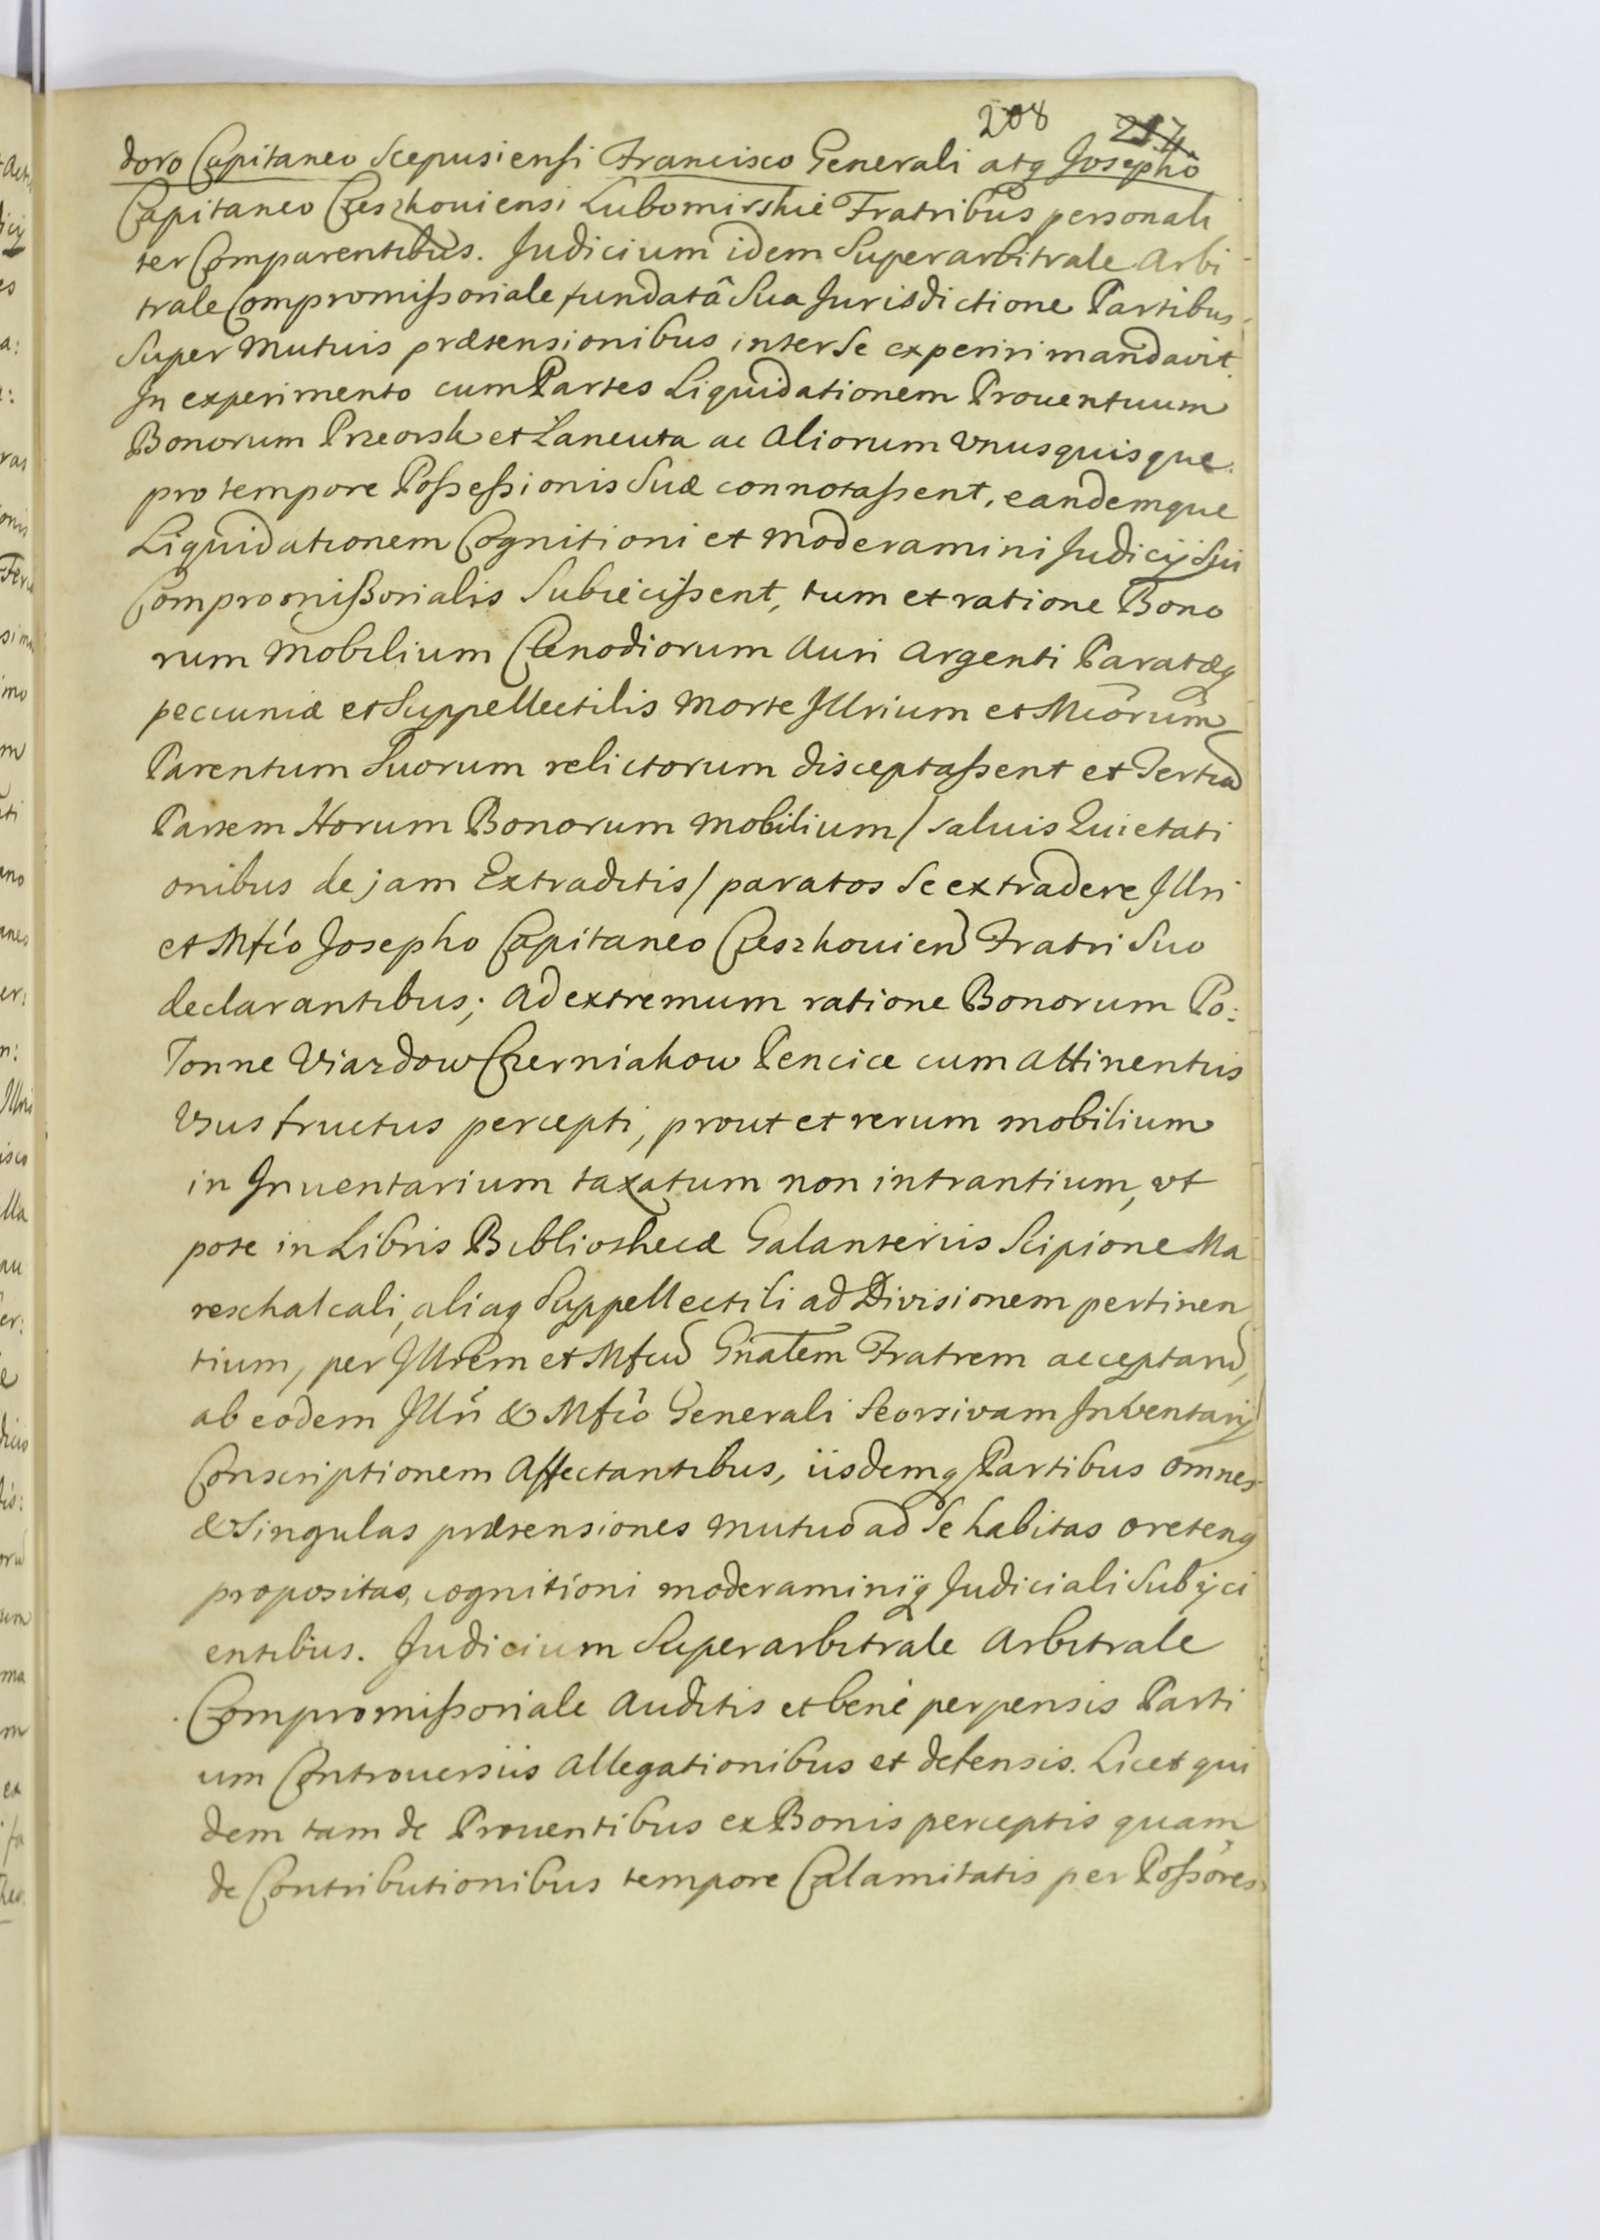 208 217.
doro Capitaneo Scepusiensi Francisco Generali atq Josepho
Capitaneo Czeszkouiensi Lubomirskie Fratribus personali
ter Comparentibus. Judicium idem Superarbitrale Arbi
trale Compromissoriale fundatâ Sua Jurisdictione Partibus
Super Mutuis prætensionibus inter Se experiri mandavit.
In experimento cum Partes Liquidationem Prouentuum
Bonorum Przeorsk et Lancuta ac Aliorum Vnusquisque
pro tempore Possessionis Suæ connotassent, eandemque
Liquidationem Cognitioni et Moderamini Judicij Sui
Compromissorialis Subiecissent, tum et ratione Bono
rum Mobilium Clenodiorum Auri Argenti Paratæq
pecuniæ et Suppellectilis Morte Jllrium et Mcorum
Parentum Suorum relictorum disceptassent et Tertiã
Partem Horum Bonorum Mobilium / saluis Quietati
onibus de jam Extraditis / paratos Se extradere Jllri
et Mfco Josepho Capitaneo Czeszkouien Fratri Suo
declarantibus; Ad extremum ratione Bonorum Po:
Tonne Viazdow Czerniakow Pencice cum Attinentiis
Vsus fructus percepti, prout et rerum mobilium
in Jnuentarium taxatum non intrantium, vt
pote in Libris Bibliothecæ Galanteriis Scipione Ma
reschalcali, aliaq Suppellectili ad Divisionem pertinen
tium, per Jllrem et Mfcũ Gnalem Fratrem acceptarũ,
ab eodem Jllri & Mfco Generali Seorsivam Jnventarij
Conscriptionem Affectantibus, iisdemq Partibus omnes
& Singulas prætensiones mutuo ad Se habitas oretenq
propositas, cognitioni moderaminiq Judiciali Subijci
entibus. Judicium Superarbitrale Arbitrale
Compromissoriale Auditis et bene perpensis Parti
um Controuersiis Allegationibus et defensis. Licet qui
dem tam de Prouentibus ex Bonis perceptis quam
de Contributionibus tempore Calamitatis per Possores